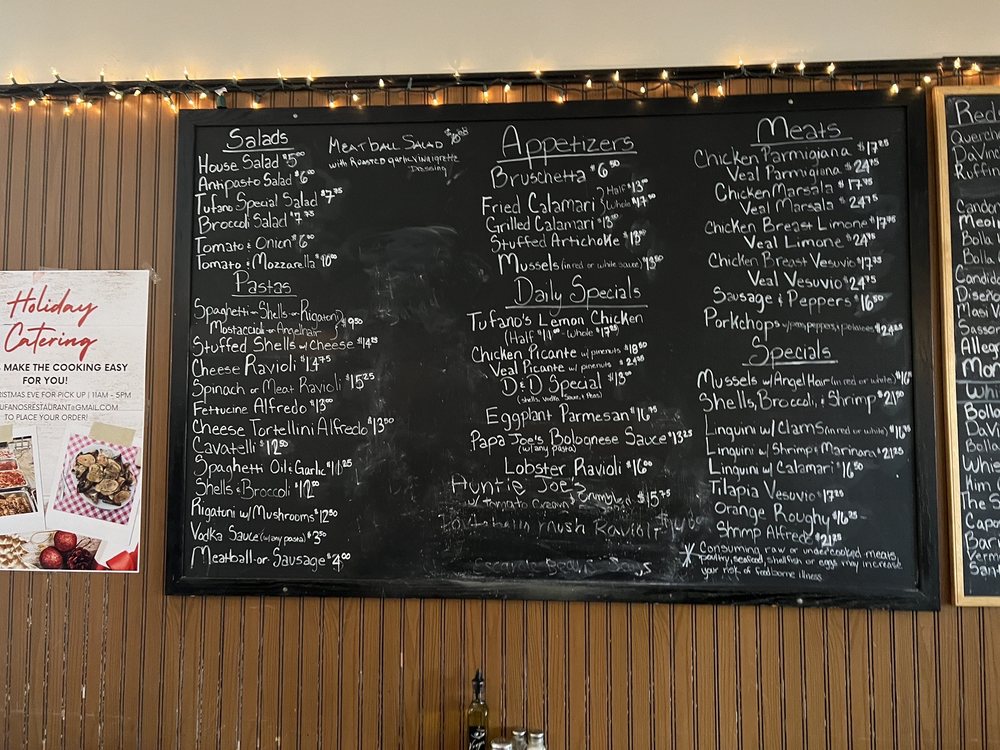 Holiday
Catering
MAKE THE COOKING EASY
FOR YOU!
EVE FOR PICK UP | 11AM - 5PM
TO PLACE YOUR ORDER!
Salads
House Salad $5.00
Antipasto Salad $6.00
Tufano Special Salad $7.75
Broccoli Salad $7.75
Tomato & Onion $6.00
Tomato & Mozzarella $10.00
MEATBALL SALAD
with ROASTED garlic vinaigrette
Dressing
Pastas
Spaghetti - Shells - or Rigatoni
Mostaccioli or Angelhair $9.50
Stuffed Shells w/ Cheese $14.25
Cheese Ravioli $14.75
Spinach or Meat Ravioli $15.25
Fettucine Alfredo $13.00
Cheese Tortellini Alfredo $13.50
Cavatelli $12.50
Spaghetti Oil & Garlic $11.25
Shells & Broccoli $12.00
Rigatoni w/ Mushrooms $12.50
Vodka Sauce (w/ any pasta) $3.50
Meatball or Sausage $4.00
Appetizers
Bruschetta $6.50
Fried Calamari Half $13.00
Whole $17.50
Grilled Calamari $13.50
Stuffed Artichoke $13.00
Mussels (in red or white sauce) $13.50
Daily Specials
Tufano's Lemon Chicken
(Half Whole
Chicken Picante w/ pinenuts $18.50
Veal Picante w/ pinenuts
D&D Special $13.00
(shells, vodka sauce, & peas)
Eggplant Parmesan $16.95
Papa Joe's Bolognese Sauce $13.25
(w/ any pasta)
Lobster Ravioli $16.00
Auntie Joe's
w/ Tomato Cream & Crumbled $15.75
Mush Ravioli
Meats
Chicken Parmigiana $17.25
Veal Parmigiana $24.75
Chicken Marsala $17.75
Veal Marsala $24.75
Chicken Breast Limone $17.75
Veal Limone $24.75
Chicken Breast Vesuvio $17.75
Veal Vesuvio $24.75
Sausage & Peppers $16.50
Porkchops w/ peppers & potatoes $24.25
Specials
Mussels w/ Angel Hair (in red or white) $16
Shells, Broccoli, & Shrimp $21.50
Linguini w/ Clams (in red or white) $16.75
Linguini w/ Shrimp & Marinara $21.25
Linguini w/ Calamari $16.50
Tilapia Vesuvio $17.25
Orange Roughy $16.25
Shrimp Alfredo $21.25
* Consuming raw or undercooked meats,
poultry, seafood, shellfish or eggs may increase
your risk of foodborne illness